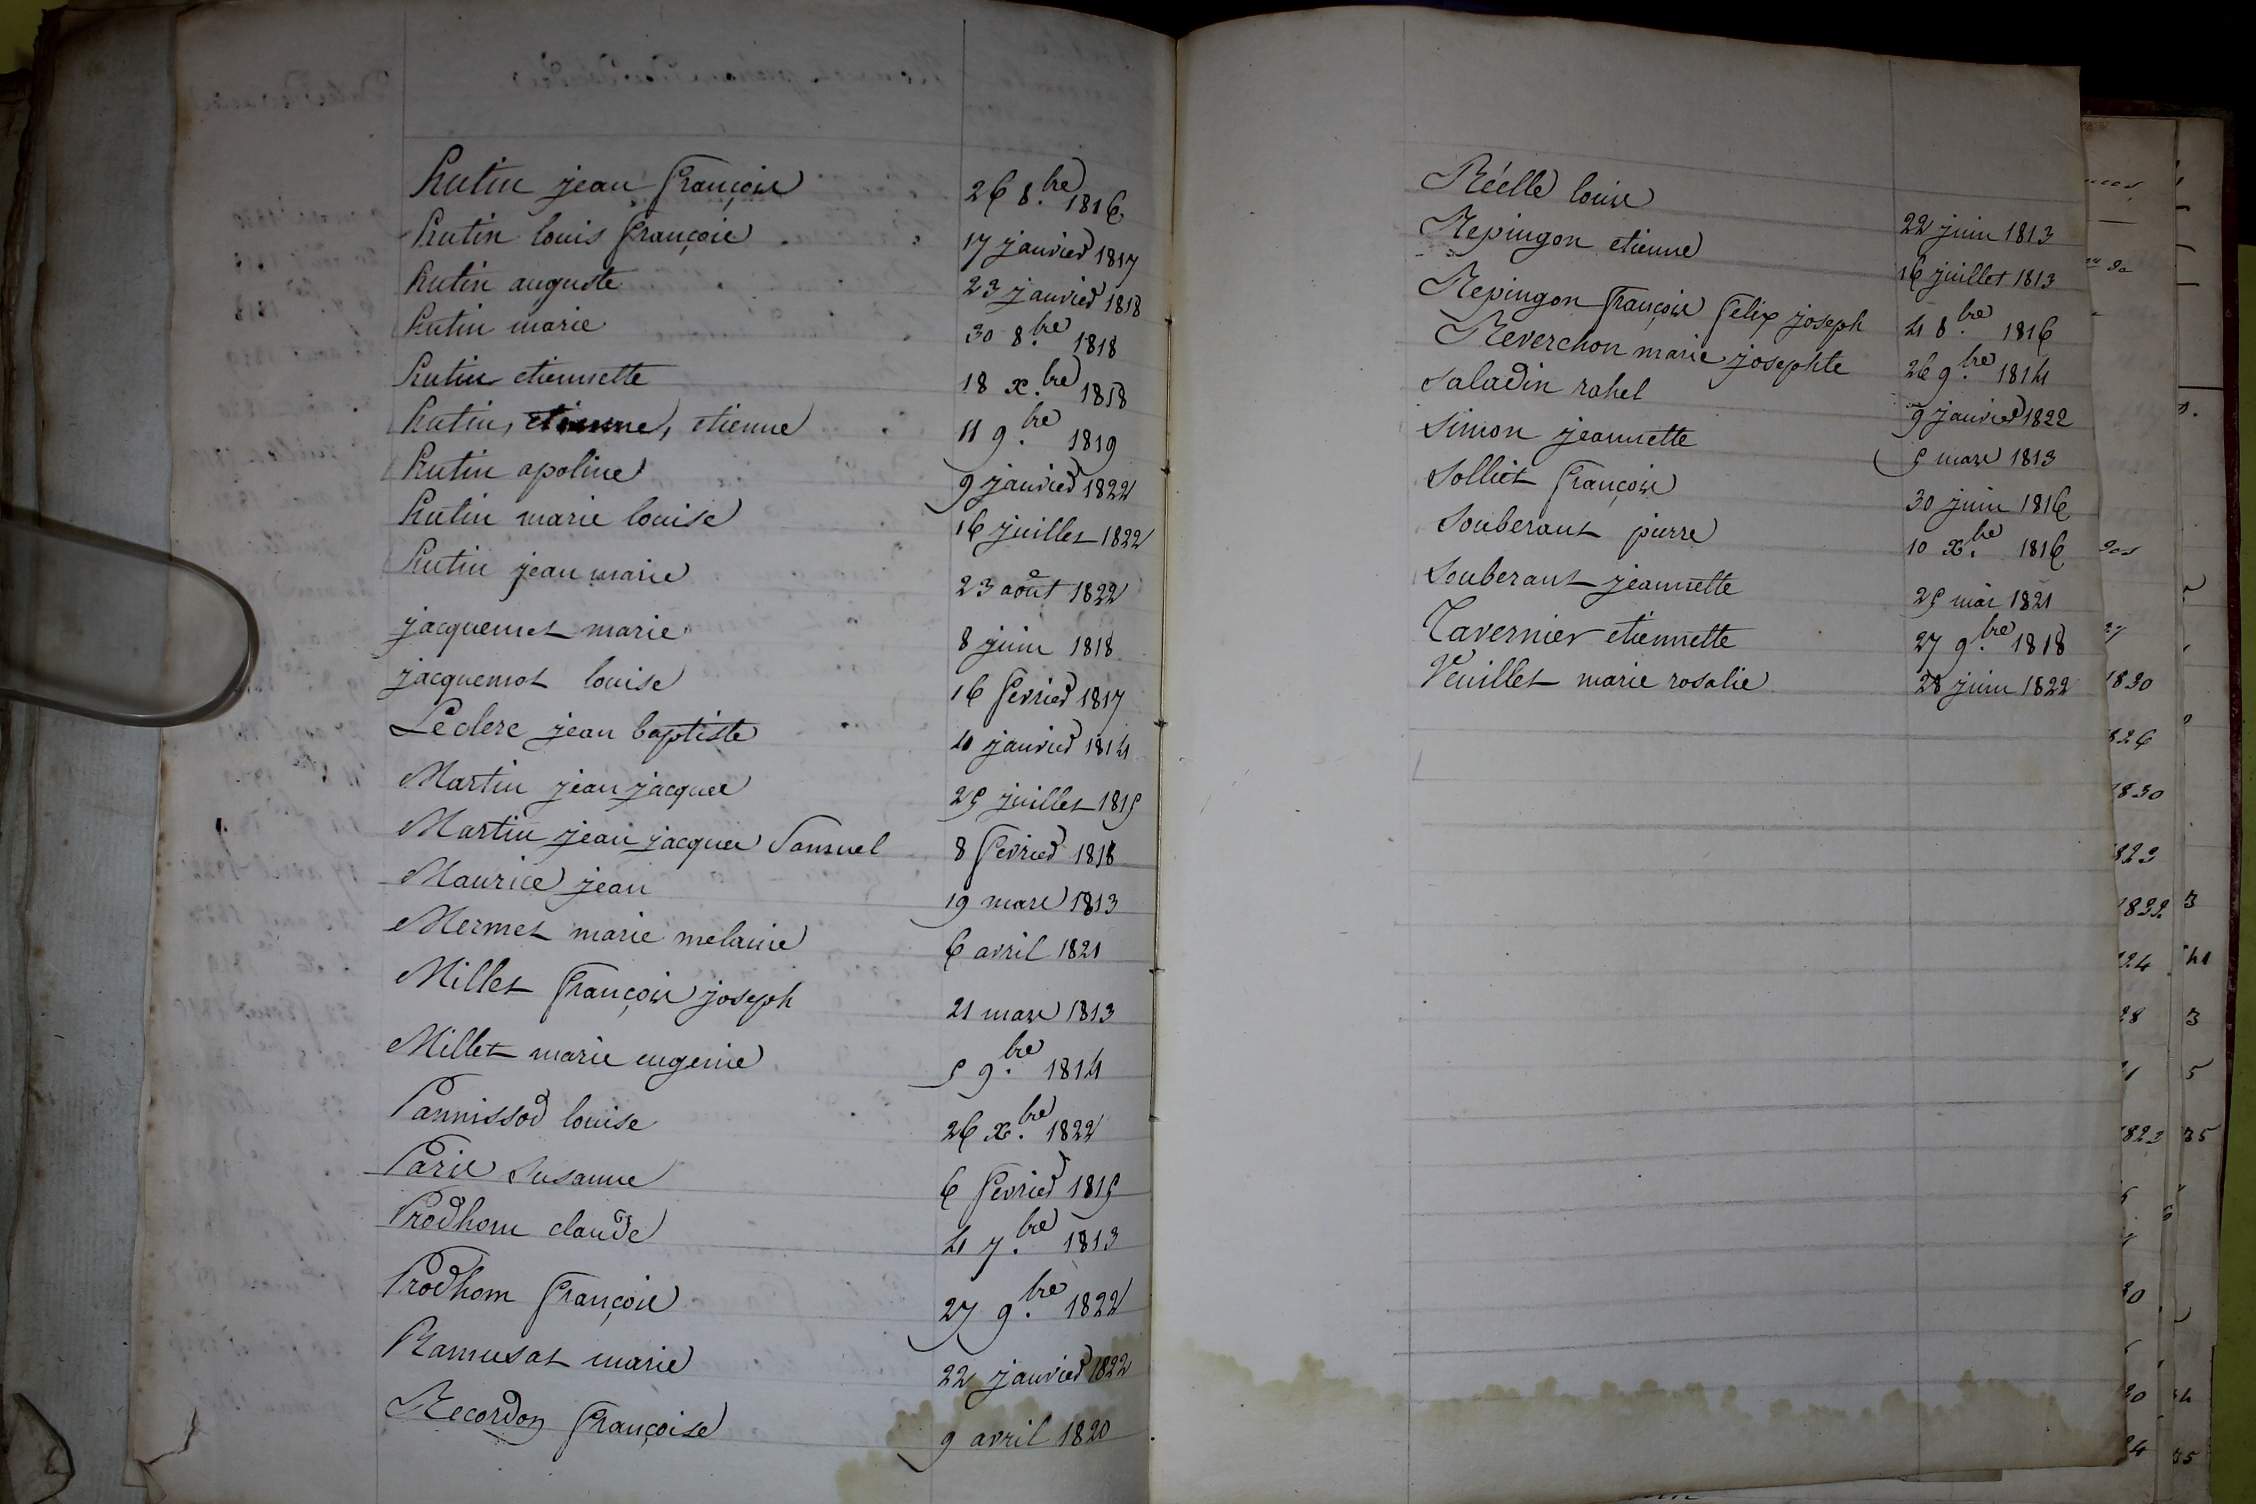 hutin jean françois 26 8.bre 1816
hutin louis françois 17 janvier 1817
hutin auguste 23 janvier 1818
hutin marie 30 8.bre 1818
hutin etiennette 18 x.bre 1818
hutin, etienne, etienne 11 9.bre 1819
hutin apoline 9 janvier 1822
hutin marie louise 16 juillet 1822
hutin jean marie 23 août 1822
jacquemet marie 8 juin 1818
jacquemot louise 16 fevrier 1817
Leclerc jean baptiste 4 janvier 1814
Martin jean jacques 25 juillet 1815
Martin jean jacques Samuel 8 fevrier 1818
Maurice jean 19 mars 1813
Mermet marie melanie 6 avril 1821
Millet françois joseph 21 mars 1813
Millet marie eugenie 5 9.bre 1814
Pannissod louise 26 x.bre 1822
Paris Susanne 6 fevrier 1815
Prodhom claude 4 7.bre 1813
Prodhom françois 27 9.bre 1822
Ramusat marie 22 janvier 1822
Recordon françoise 9 avril 1820
Réelle louise 22 juin 1813
Repingon etienne 16 juillet 1813
Repingon françois felix joseph 4 8.bre 1816
Reverchon marie josephte 26 9.bre 1814
Saladin rahel 9 janvier 1822
Simon jeannette 5 mars 1813
Solliet françois 30 juin 1816
Souberant pierre 10 x.bre 1816
Souberant jeannette 25 mai 1821
Tavernier etiennette 27 9.bre 1818
Veuillet marie rosalie 28 juin 1822